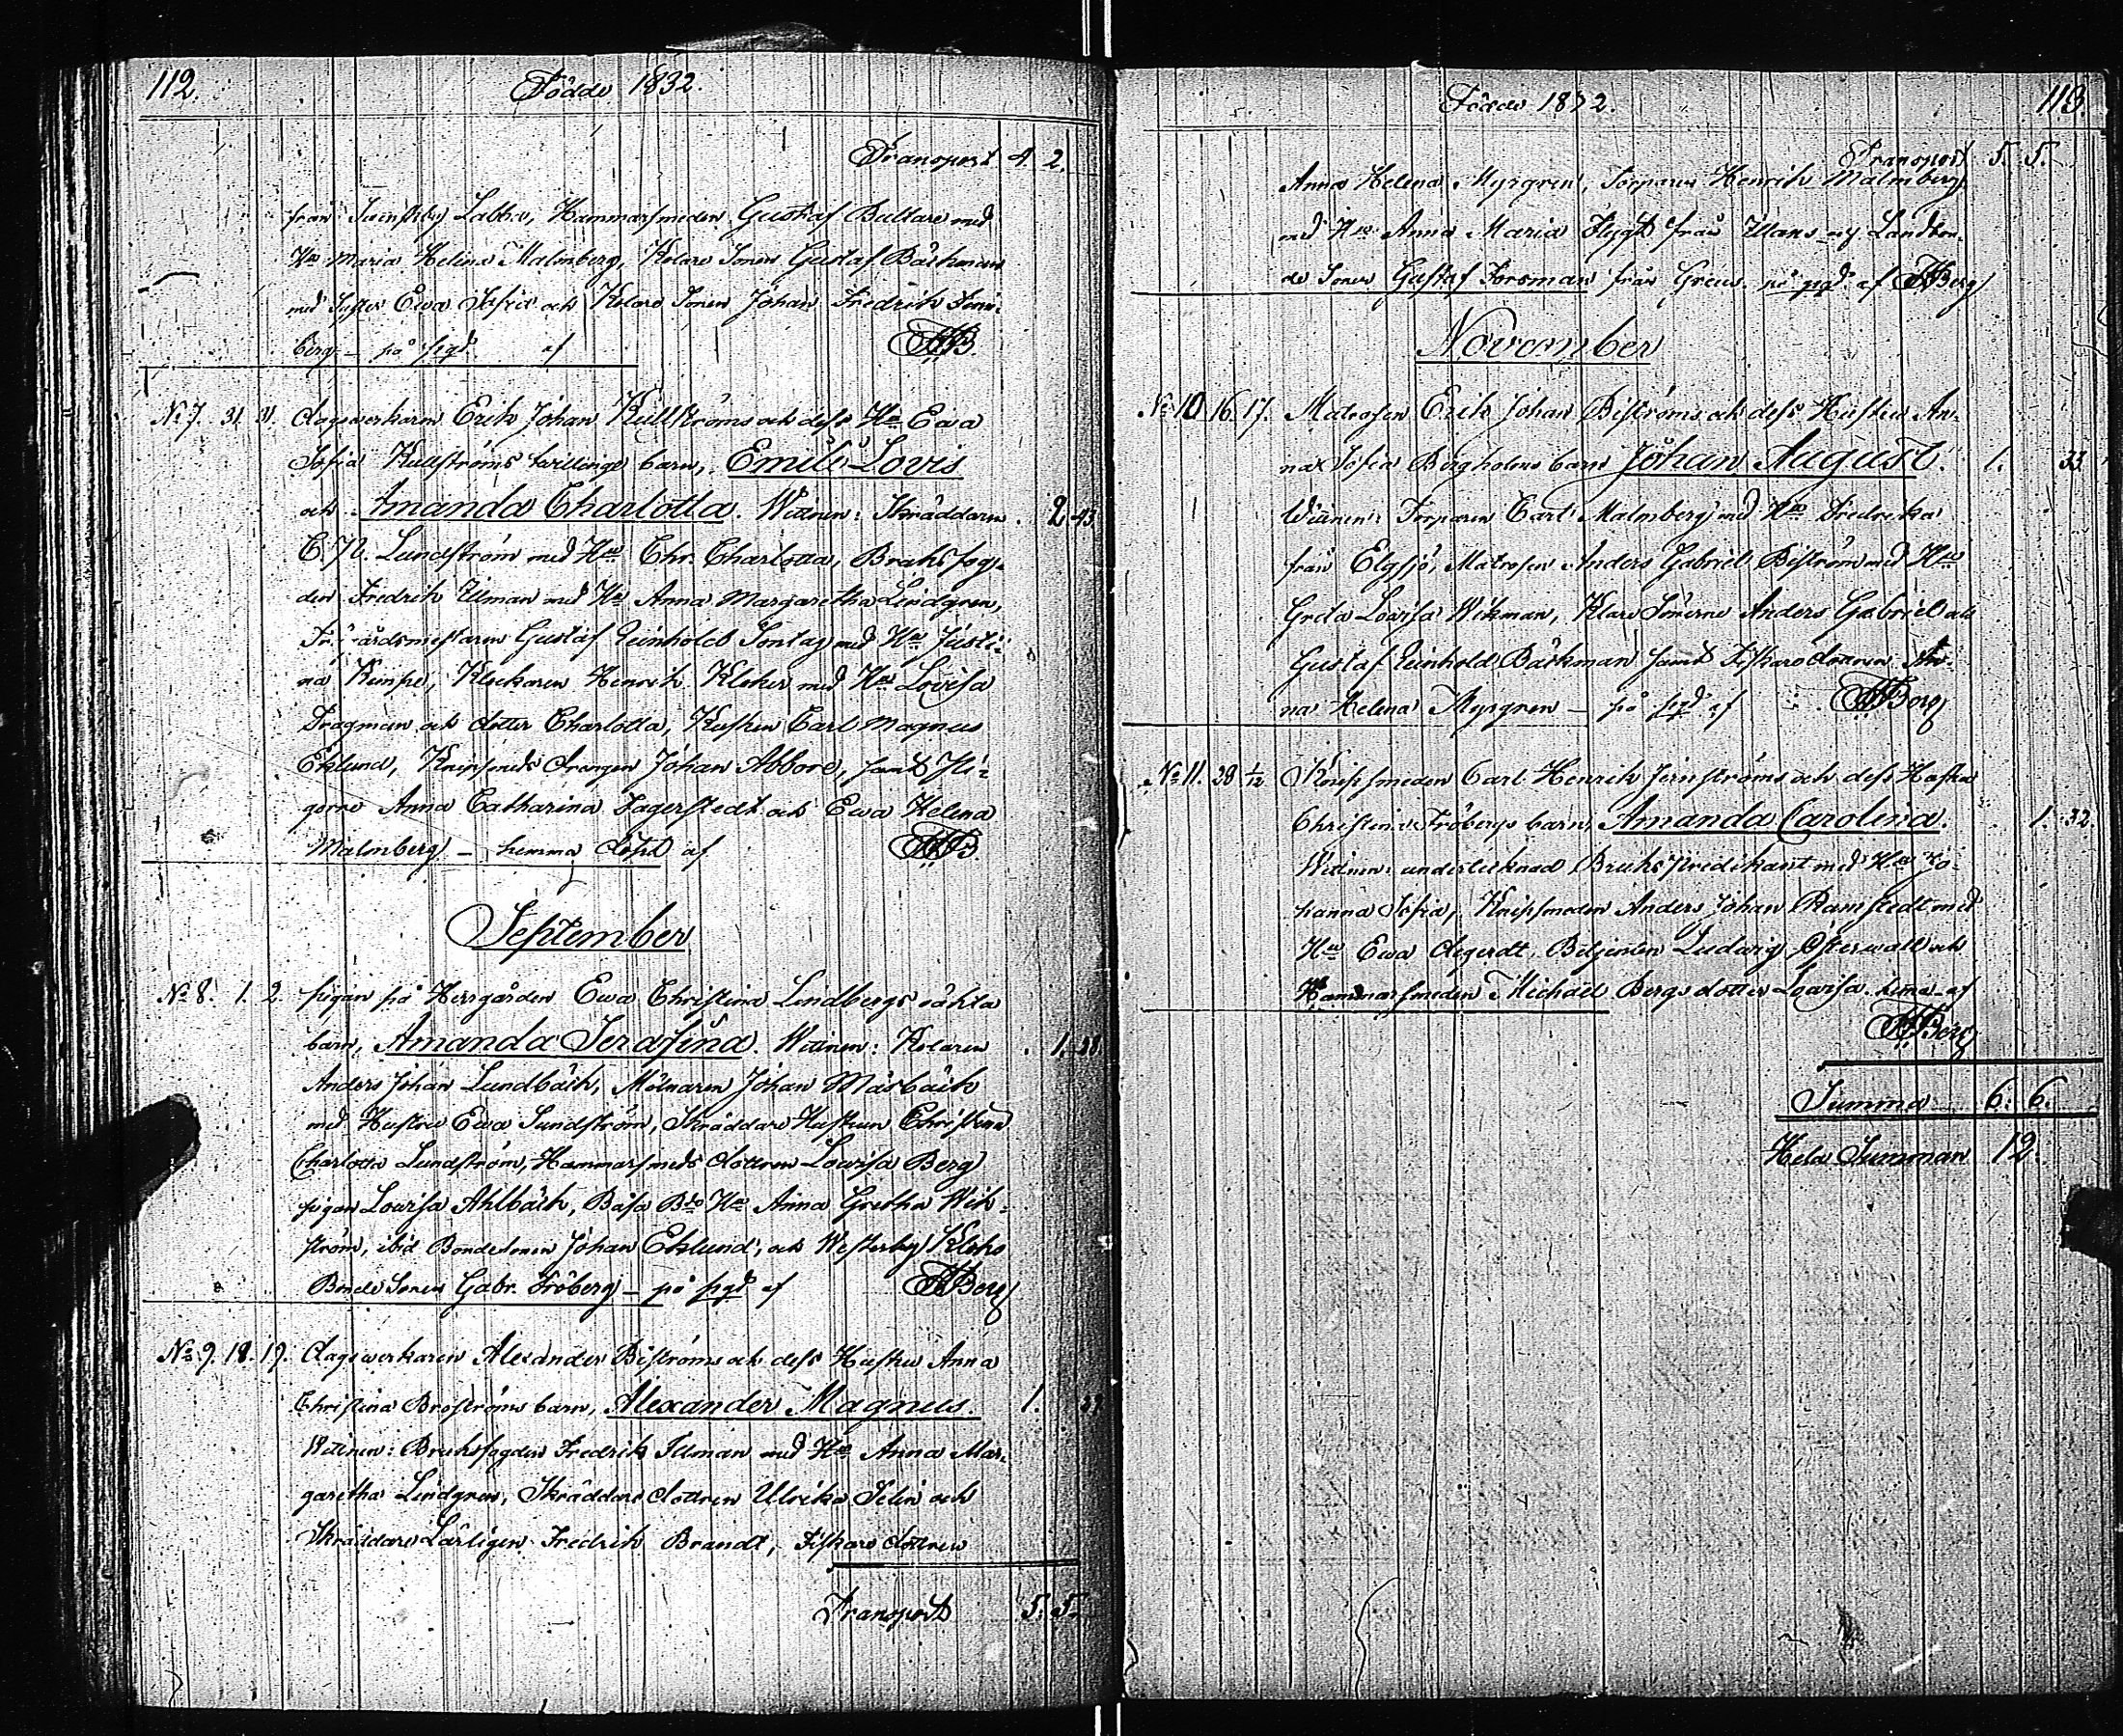 112.
Födde 1832.
Transport 4. 2.
från Svenskby Labba, Hammarsmeden Gustaf Bultare med
Hu Maria Helena Malmberg, Kolare Sonen Gustaf Bäckman
med Syster Ewa Sofia och Kolare Sonen Johan Fredrik
berg – på sigd af HB.
No 7. 31. 31. dagsverkaren Erik Johan Kullströms och dess Hu Ewa
Sofia Kullströms twillinge barn, Emili Lovis
och Amanda Charlotta. Wittnen: Skräddaren 2 43
C. N. Lundström med Hu Chr. Charlotta, Bruksfogden
den Fredrik Ulman med Hu Anna Margaretha Lindgren,
Trägårdsmestaren Gustaf Reinhold Sontag med Hu Justi-
na Kempe, Klockaren Henrik Kloker med Hu Lovisa
Dragman och dotter Charlotta, Kusken Carl Magnus
Eklund, Knipsmeds drengen Johan Abbore, samt Pi-
gorne Anna Catharina Fagerstedt och Ewa Helena
Malmberg – hemma döpd af HB.
September
No 8. 1. 2. pigan på Herrgården Ewa Christina Lindbergs oäkta
barn, Amanda Serafina. Wittnen: Kolaren 1. 28.
Anders Johan Lundbäck, Mölnaren Johan Måsbäck
med Hustru Ewa Sundström, Skräddare Hustrun Christina
Charlotta Lundström, Hammarsmeds dottren Lowisa Berg
pigan Lowisa Ahlbäck, Båsa Bdo Hu Anna Gretha Wik-
ström, ibid Bondesonen Johan Eklund, och Westerby Kloko
Bonde Sonen Gabr. Fröberg – på sigd af HBerg
No 9. 18. 19. dagsverkaren Alexander Biströms och dess Hustru Anna
Christina Broströms barn, Alexander Magnus. 1.
Wittnen: Bruksfogden Fredrik Ulman med Hu Anna Mar-
garetha Lindgren, Skräddare dottren Ulrika Selin och
Skräddare Lärligen Fredrik Brandt, Fiskare dottren
Transport 5. 5.
Födde 1832.
113.
Transport 5. 5.
Anna Helena Myrgren, Torparen Henrik Malmberg
med Hu Anna Maria Flygt från och Landbon-
de Sonen Gustaf Forsman från Greus på sigd af HBerg
November
No 10 16. 17. Matrosen Erik Johan Biströms och dess Hustru An-
na Sofia Bergholms barn Johan August. 1. 33.
Wittnen: Torparen Carl Malmberg med Hu Fredrika
från Elgsjö, Matrosen Anders Gabriel Biström med Hu
Greta Lovisa Wikman, Kolare Sönerne Anders Gabriel och
Gustaf Reinhold Bäckman samt Fiskare dottren An-
na Helena Myrgren – på sigd af HBerg
No 11. 28 1/12 Knipsmeden Carl Henrik Jernströms och dess Hustru
Christina Fröbergs barn, Amanda Carolina. 1. 32.
Wittnen: undertecknad Bruks Predikant med Hu Jo-
hanna Sofia, Knipsmeden Anders Johan Ramstedt med
Hu Ewa Degerdt, Betjenten Ludvig Österwall och
Hammarsmeden Michael Bergs dotter Lovisa. hema af
HBerg
Summa 6. 6.
Hela Summan 12.